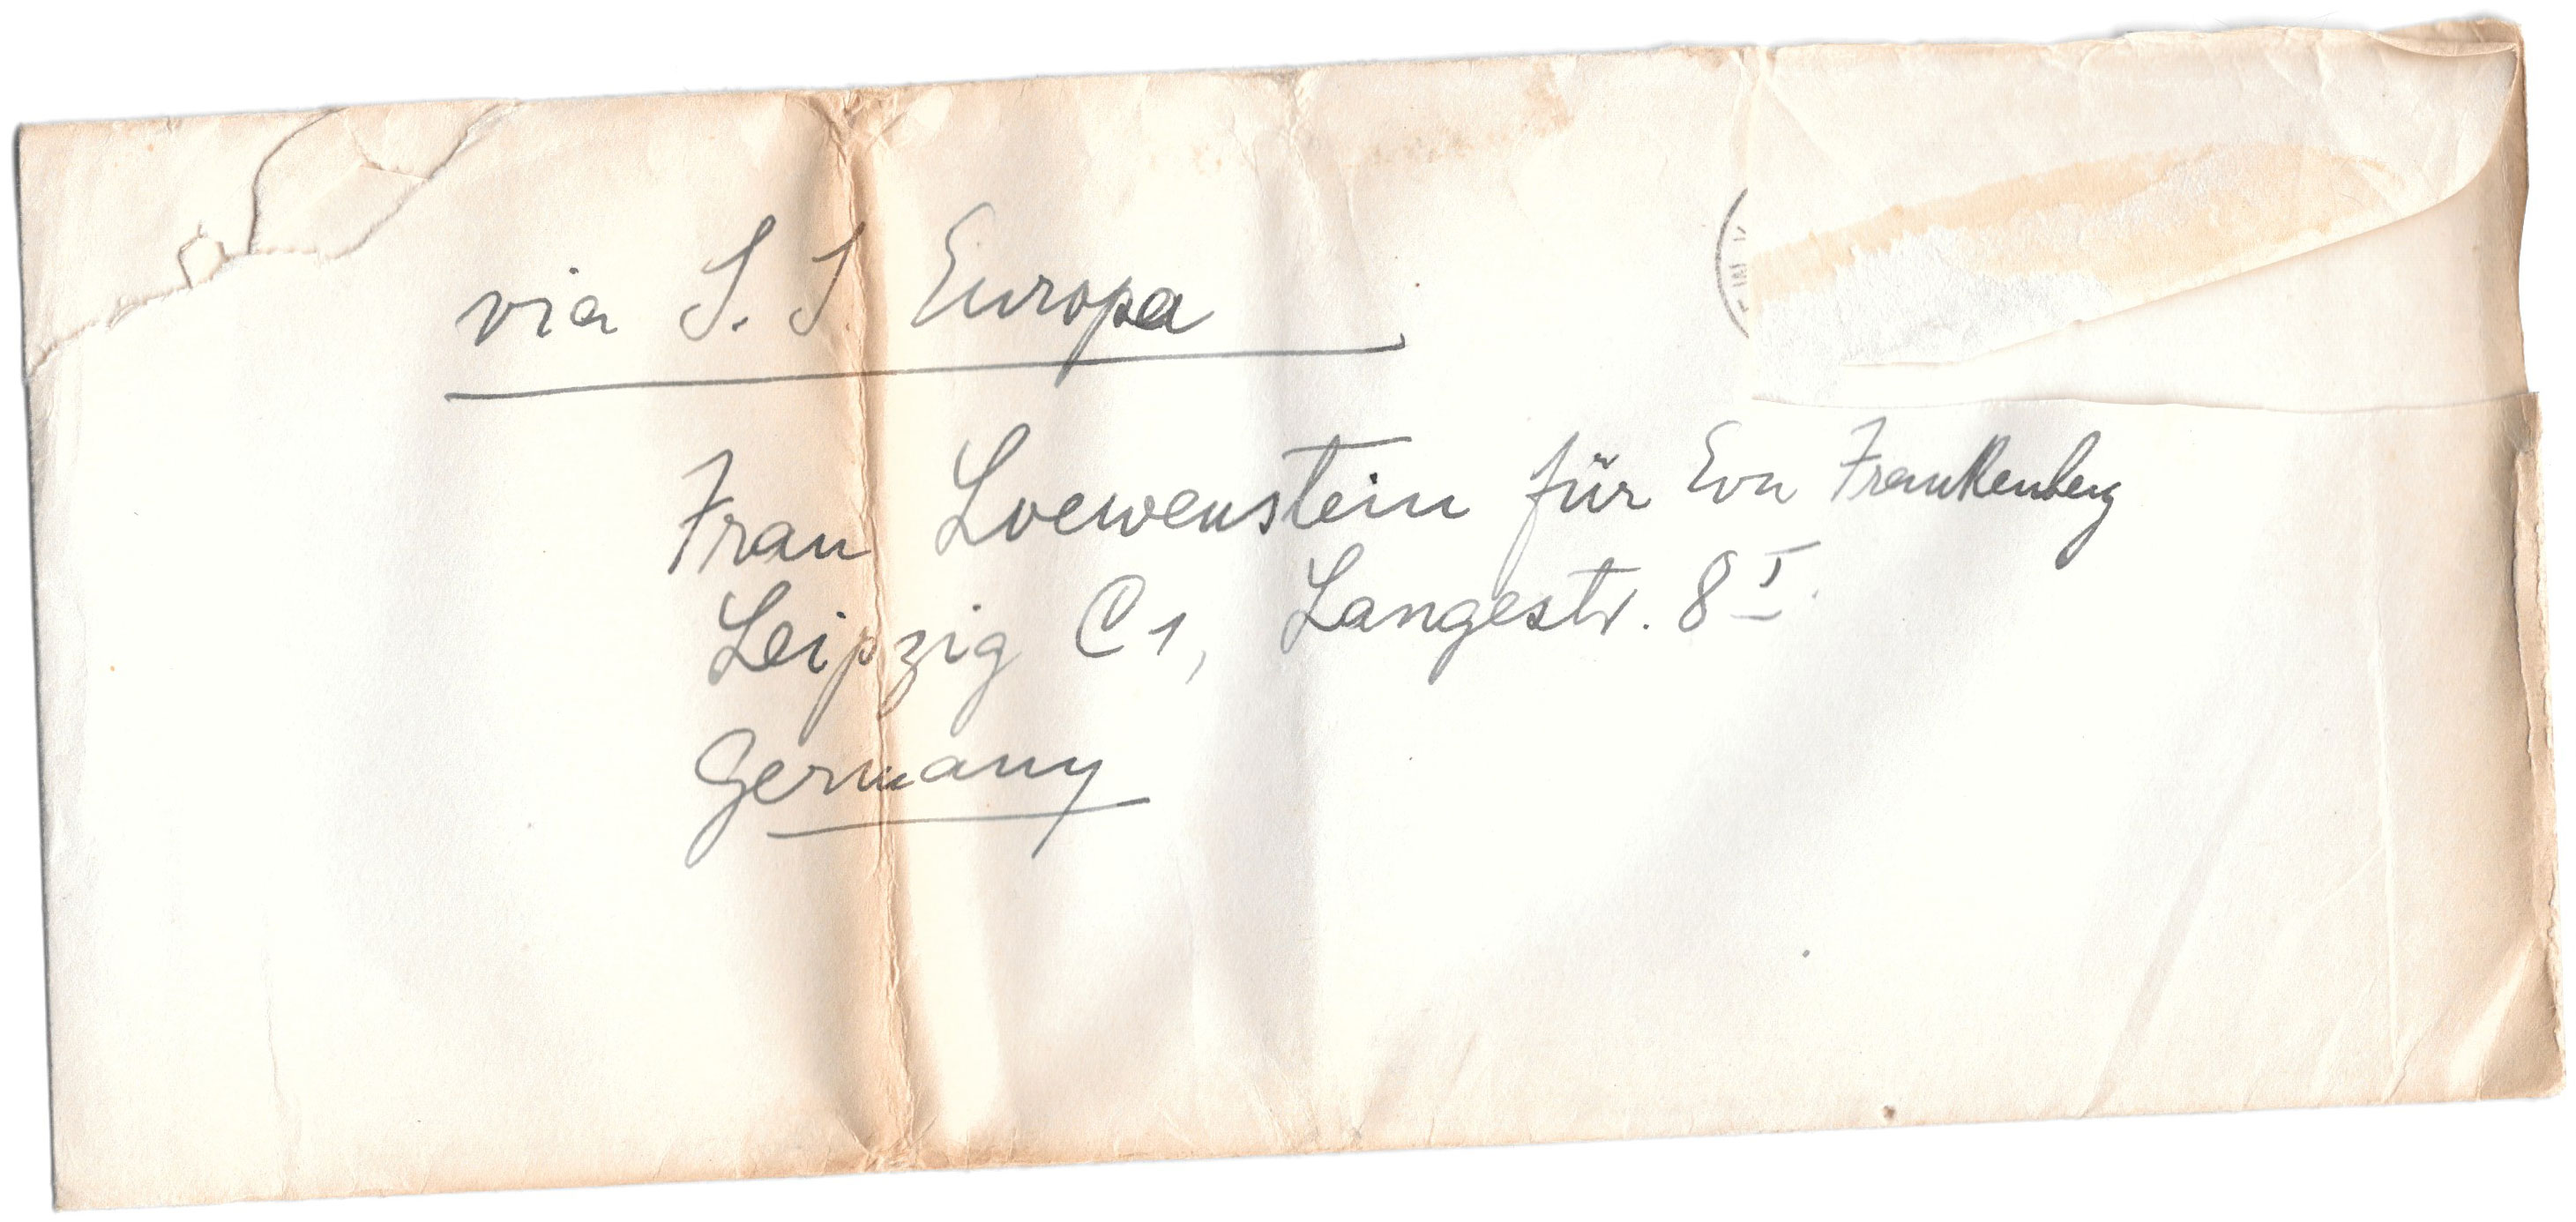 via S. S Europa
Frau Loewenstein für Eva Frankenberg
Leipzig C1, Langestr. 8 I.
Germany